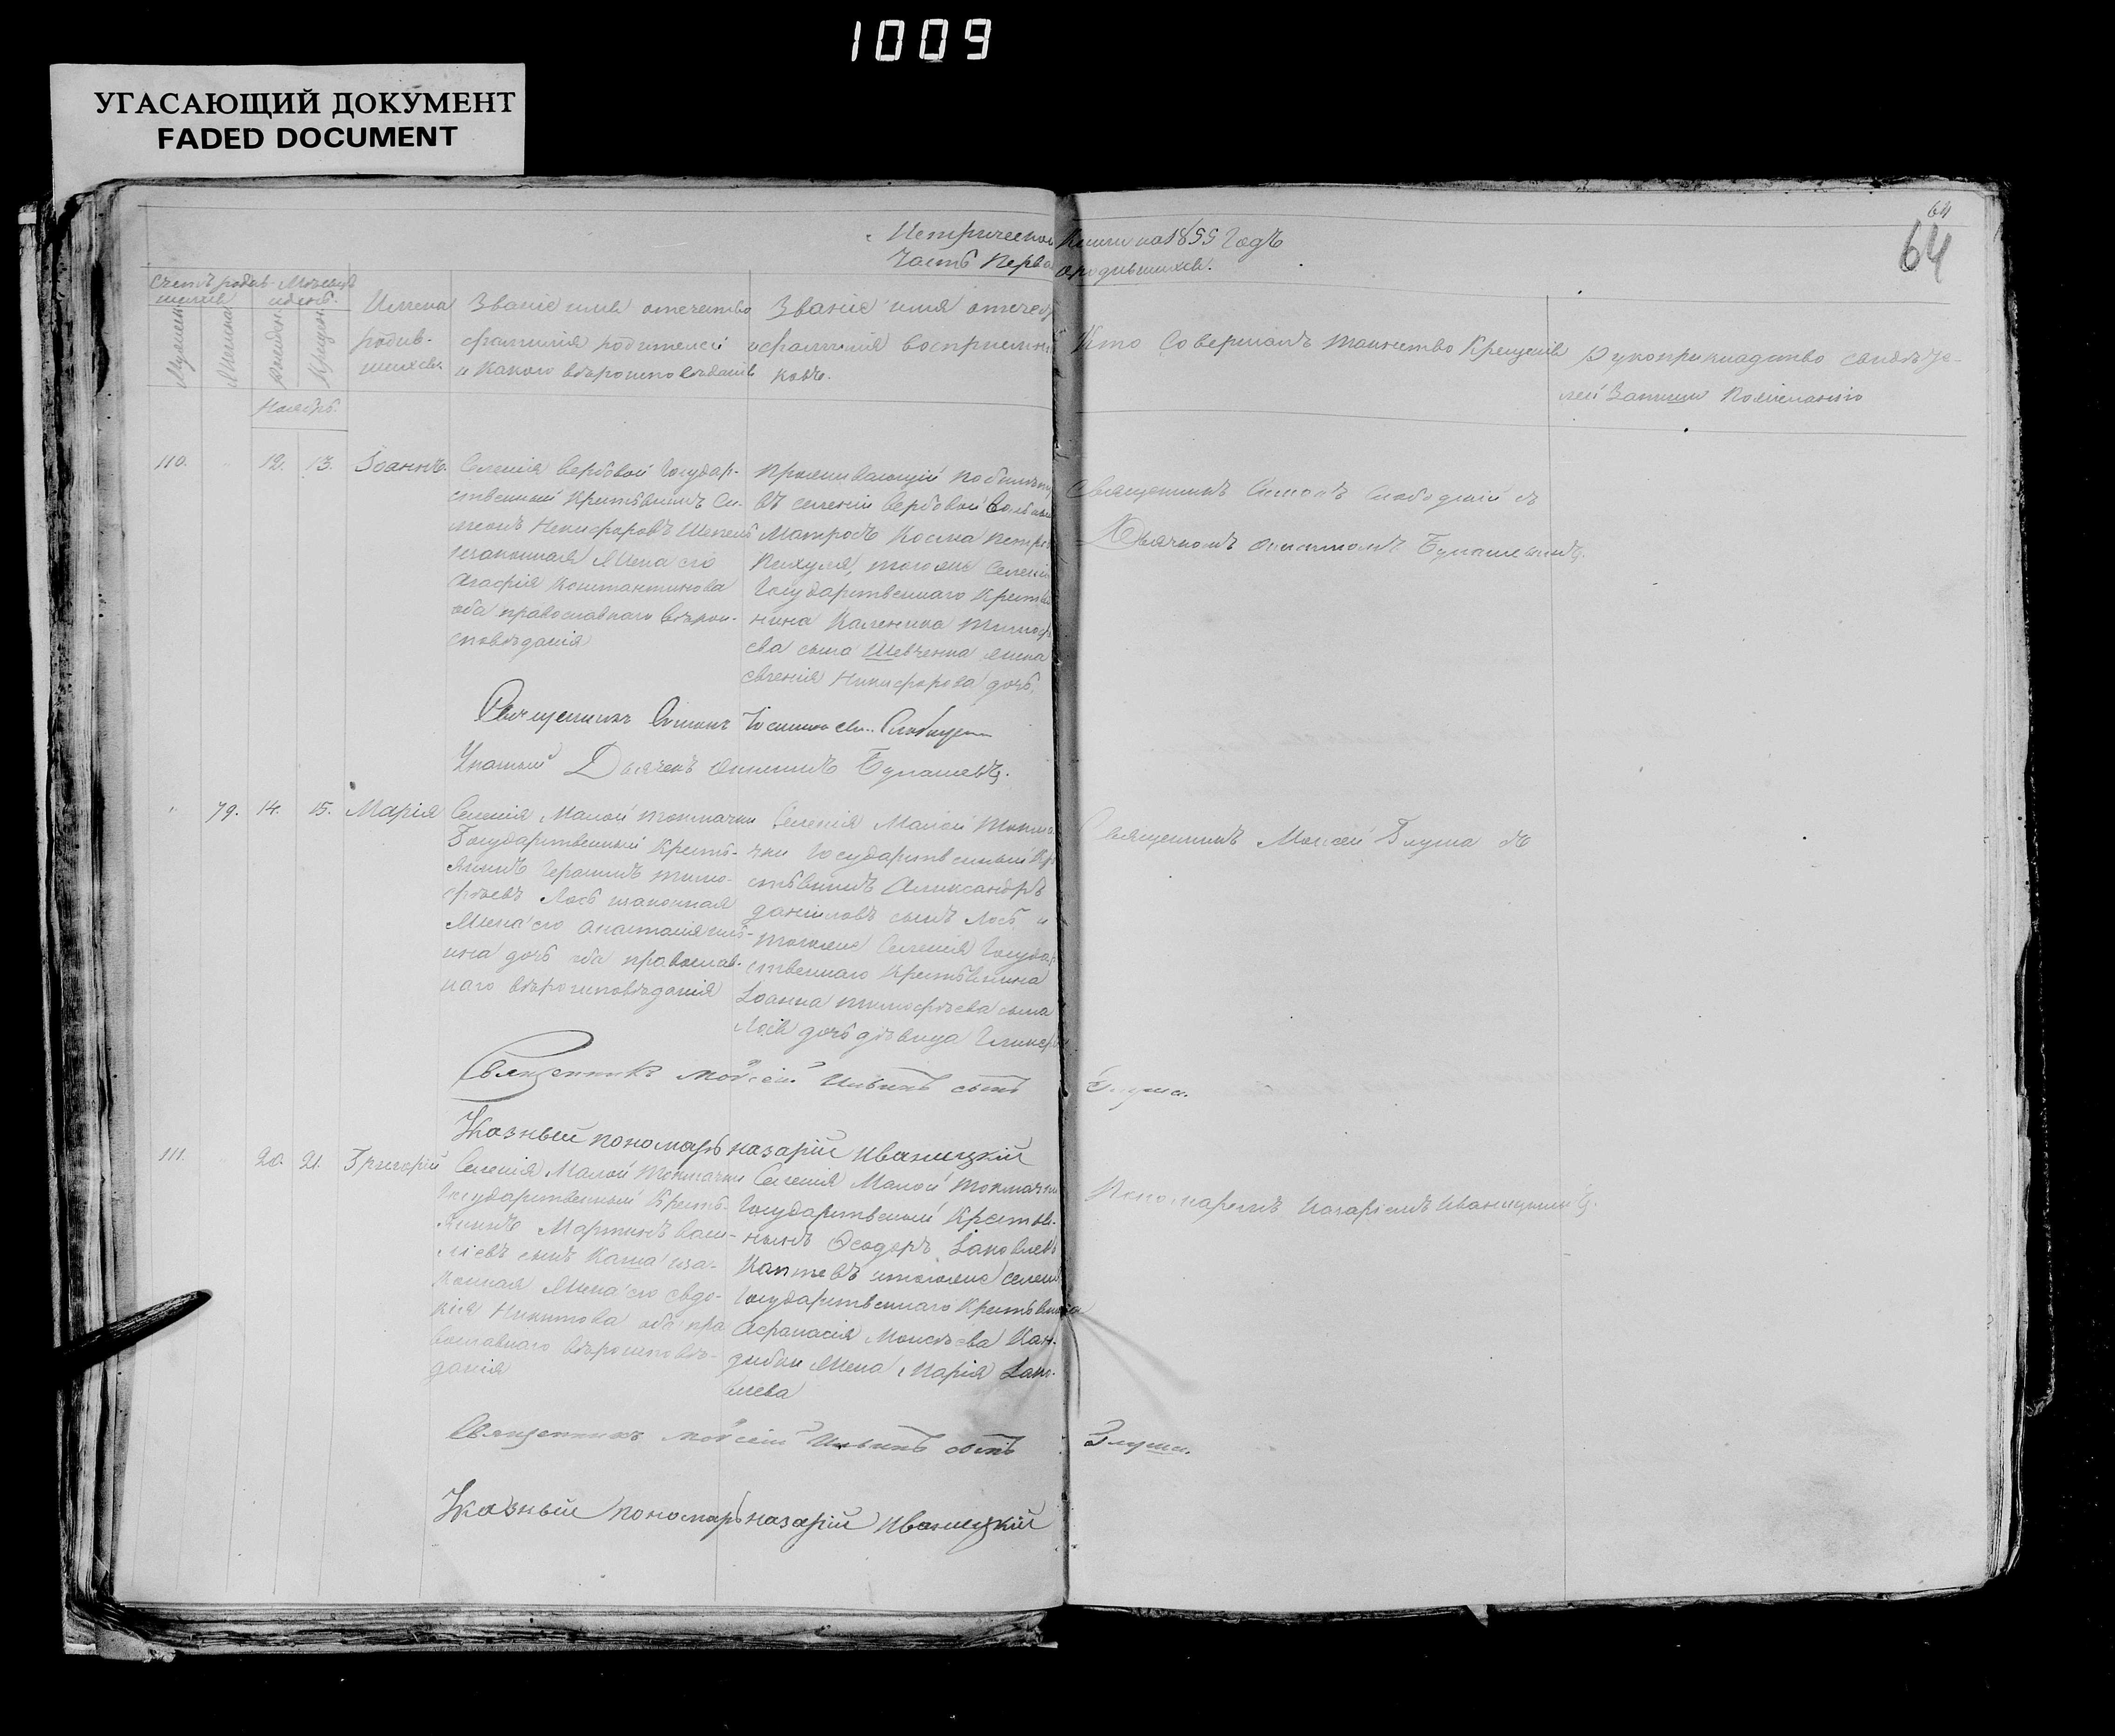 1009
УГАСАЮЩИЙ ДОКУМЕНТ
FADED DOCUMENT
64
64
Метрической Книги на 1855 Годъ
Часть Первая о родившихся.
Счетъ родив-
шихся
Мѣсяцъ
и день.
Мужеска
Женска
Рожден.
Крещен.
Имена
родив-
шихся.
Званіе имя отечество
фамилія родителей
и какого вѣроисповѣданія
Званіе имя отечес
и фамилія восприемни
ковъ.
Кто Совершалъ таинство Крещенія
Рукоприкладство свидѣте-
лей Записи По желанію
Ноябрь.
110.
12.
13.
Іоаннъ.
Селенія Вербовой Государ-
ственный Крестьянинъ Си-
меонъ Никифоровъ
и законная Жена его
Агафія Константинова
оба православнаго вѣрои-
сповѣданія
Проживающій по билету
въ селеніи Вербовой
Матросъ Косма Петров
того же Селенія
Государственнаго Кресть
нина Каленика Тимоф
ева сына Шевченка жена
Евгенія Никифорова дочь.
Священникъ Симонъ Слободскій съ
Дьячкомъ
Священникъ Симонъ
Указный Дьячекъ
79.
14.
15.
Марія
Селенія Малой Токмачки
Государственный Кресть-
янинъ Герасимъ Тимо-
фѣевъ Лось и законная
Жена его Анастасія
дочь оба православ-
наго вѣроисповѣданія
Селенія Малой Токма
чки Государственный Кр
стьянинъ Александръ
Даніиловъ сынъ Лось и
тогоже Селенія Государ
ственнаго Крестьянина
Іоанна Тимофѣева сына
Лося дочь дѣвица
Священникъ Моисей Глуша съ
Священникъ Мойсей сынъ
Глуша.
Указный пономарь назарій иваницкій
111.
20.
21.
Григорій
Селенія Малой Токмачки
Государственный Кресть-
янинъ Мартинъ Васи-
ліевъ сынъ Каша и за-
конная Жена его Евдо-
кія Никитова оба пра
вославнаго вѣроисповѣ-
данія
Селенія Малой Токмачки
Государственный Крестья-
нинъ Феодоръ Іаковлевъ
Каптевъ и тогоже селен
Государственнаго Крестьянина
Афанасія Моисѣева Кан-
дибы Жена Марія Іако-
влева
Пономаремъ Назаріемъ Иваницкимъ.
Священникъ мойсей сынъ
Глуша.
Указный пономарь назарій иваницкій